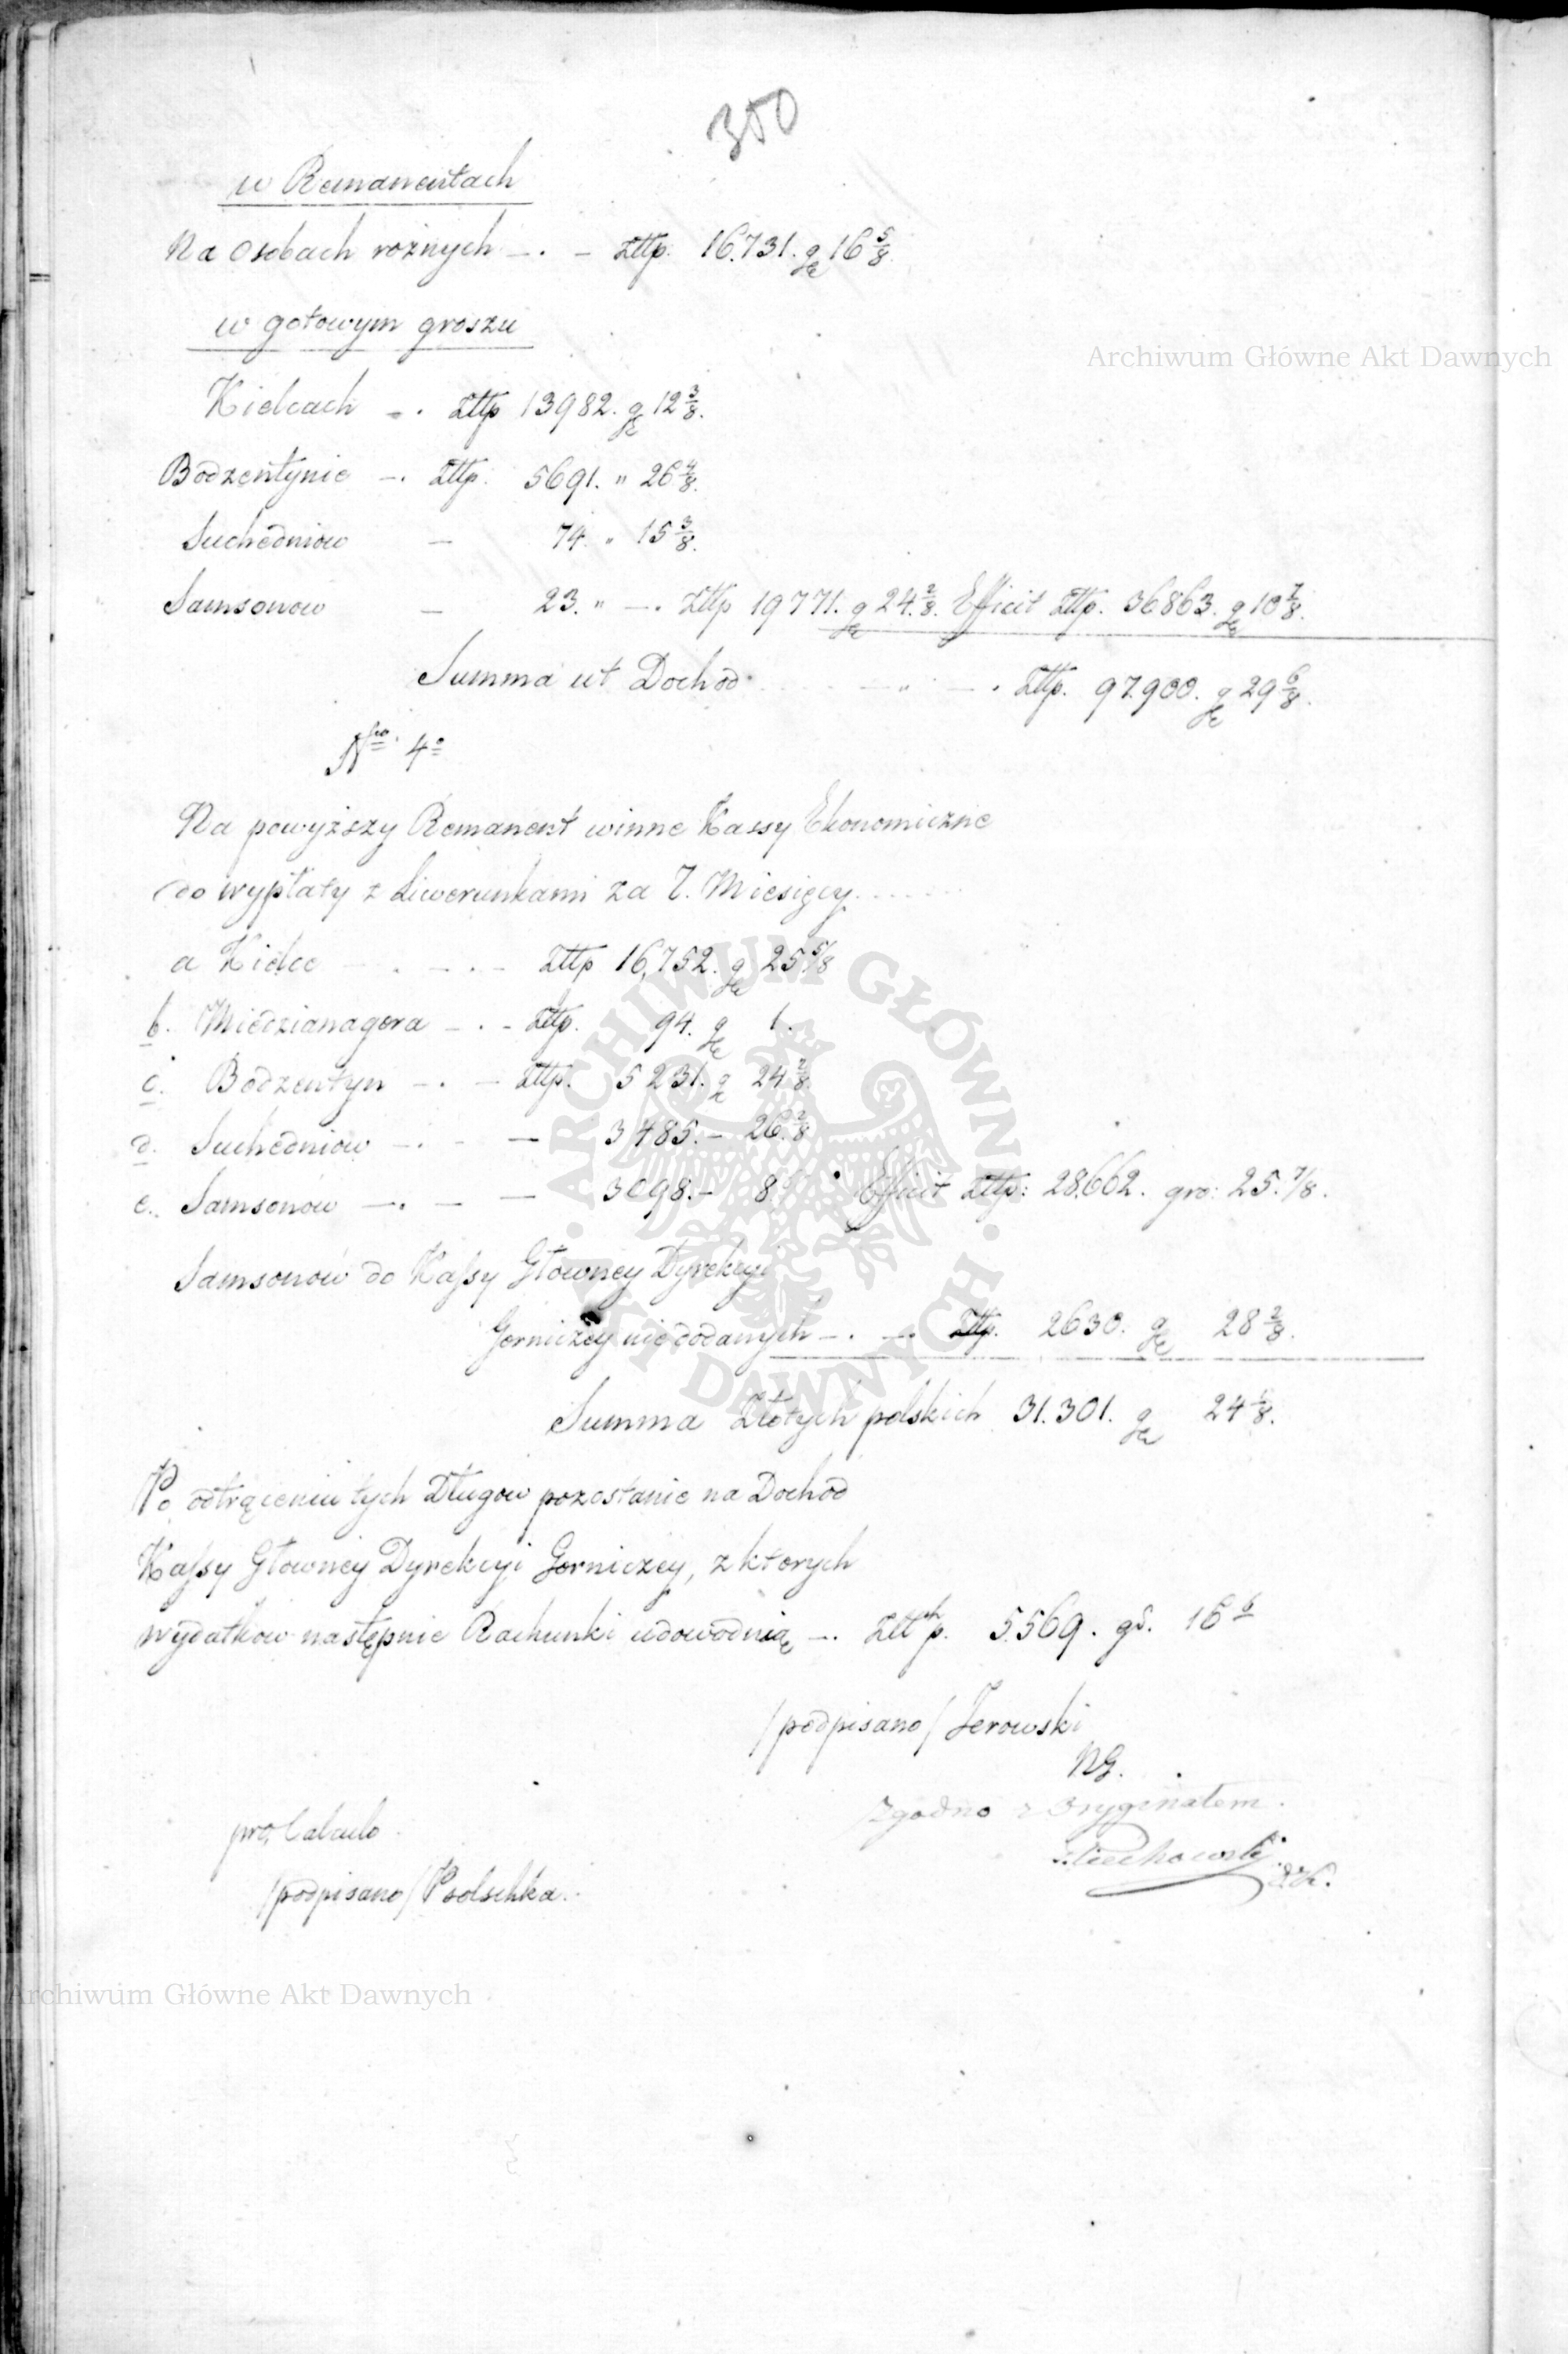 350
w Remanentach
Na Osobach rożnych —. — Złłp. 16.731. gr 16 5/8.
w gotowym groszu
Kielcach —. Złłp 13982. gr 12 3/8.
Bodzentynie —. Złłp. 5691. " 26 4/8.
Suchedniow — 74. " 15 3/8.
Samsonow — 23. " —. Złłp 19771. gr 24. 2/8. Efficit Złłp. 36863. gr 10 7/8.
Summa ut Dochod — " — . Złłp. 97.900. gr 29 6/8.
Nro. 4o
Na powyższy Remanent winne Kassy Ekonomiczne
do wypłaty z Liwerunkami za 7. Miesięcy
a Kielce — . — . — Złłp 16,752. gr 25 5/8
b. Miedzianagora — . — Złłp. 94. gr 1.
c. Bodzentyn — . — Złłp. 5231. gr 24 2/8.
d. Suchedniow — . — — 3485. — 26. 2/8
e. Samsonow — . — — 3098. — 8. Efficit Złłp: 28.662. gro: 25. 7/8.
Samsonow do Kassy Głowney Dyrekcyi
Gorniczey nie dodanych — . — Złłp. 2630. gr 28 2/8.
Summa Złotych polskich 31.301. gr 24 1/8.
Po odtrąceniu tych Długow pozostanie na Dochod
Kassy Głowney Dyrekcyi Gorniczey, z ktorych
wydatkow następnie Rachunki udowodnią —. Złłp. 5.569. gr. 16 6
/podpisano/ Jerowski
NG.
Zgodno z Oryginałem.
pro Calculo
/podpisano/ Psolschka.
Archiwum Główne Akt Dawnych
Archiwum Główne Akt Dawnych
ARCHIWUM GŁÓWNE AKT DAWNYCH